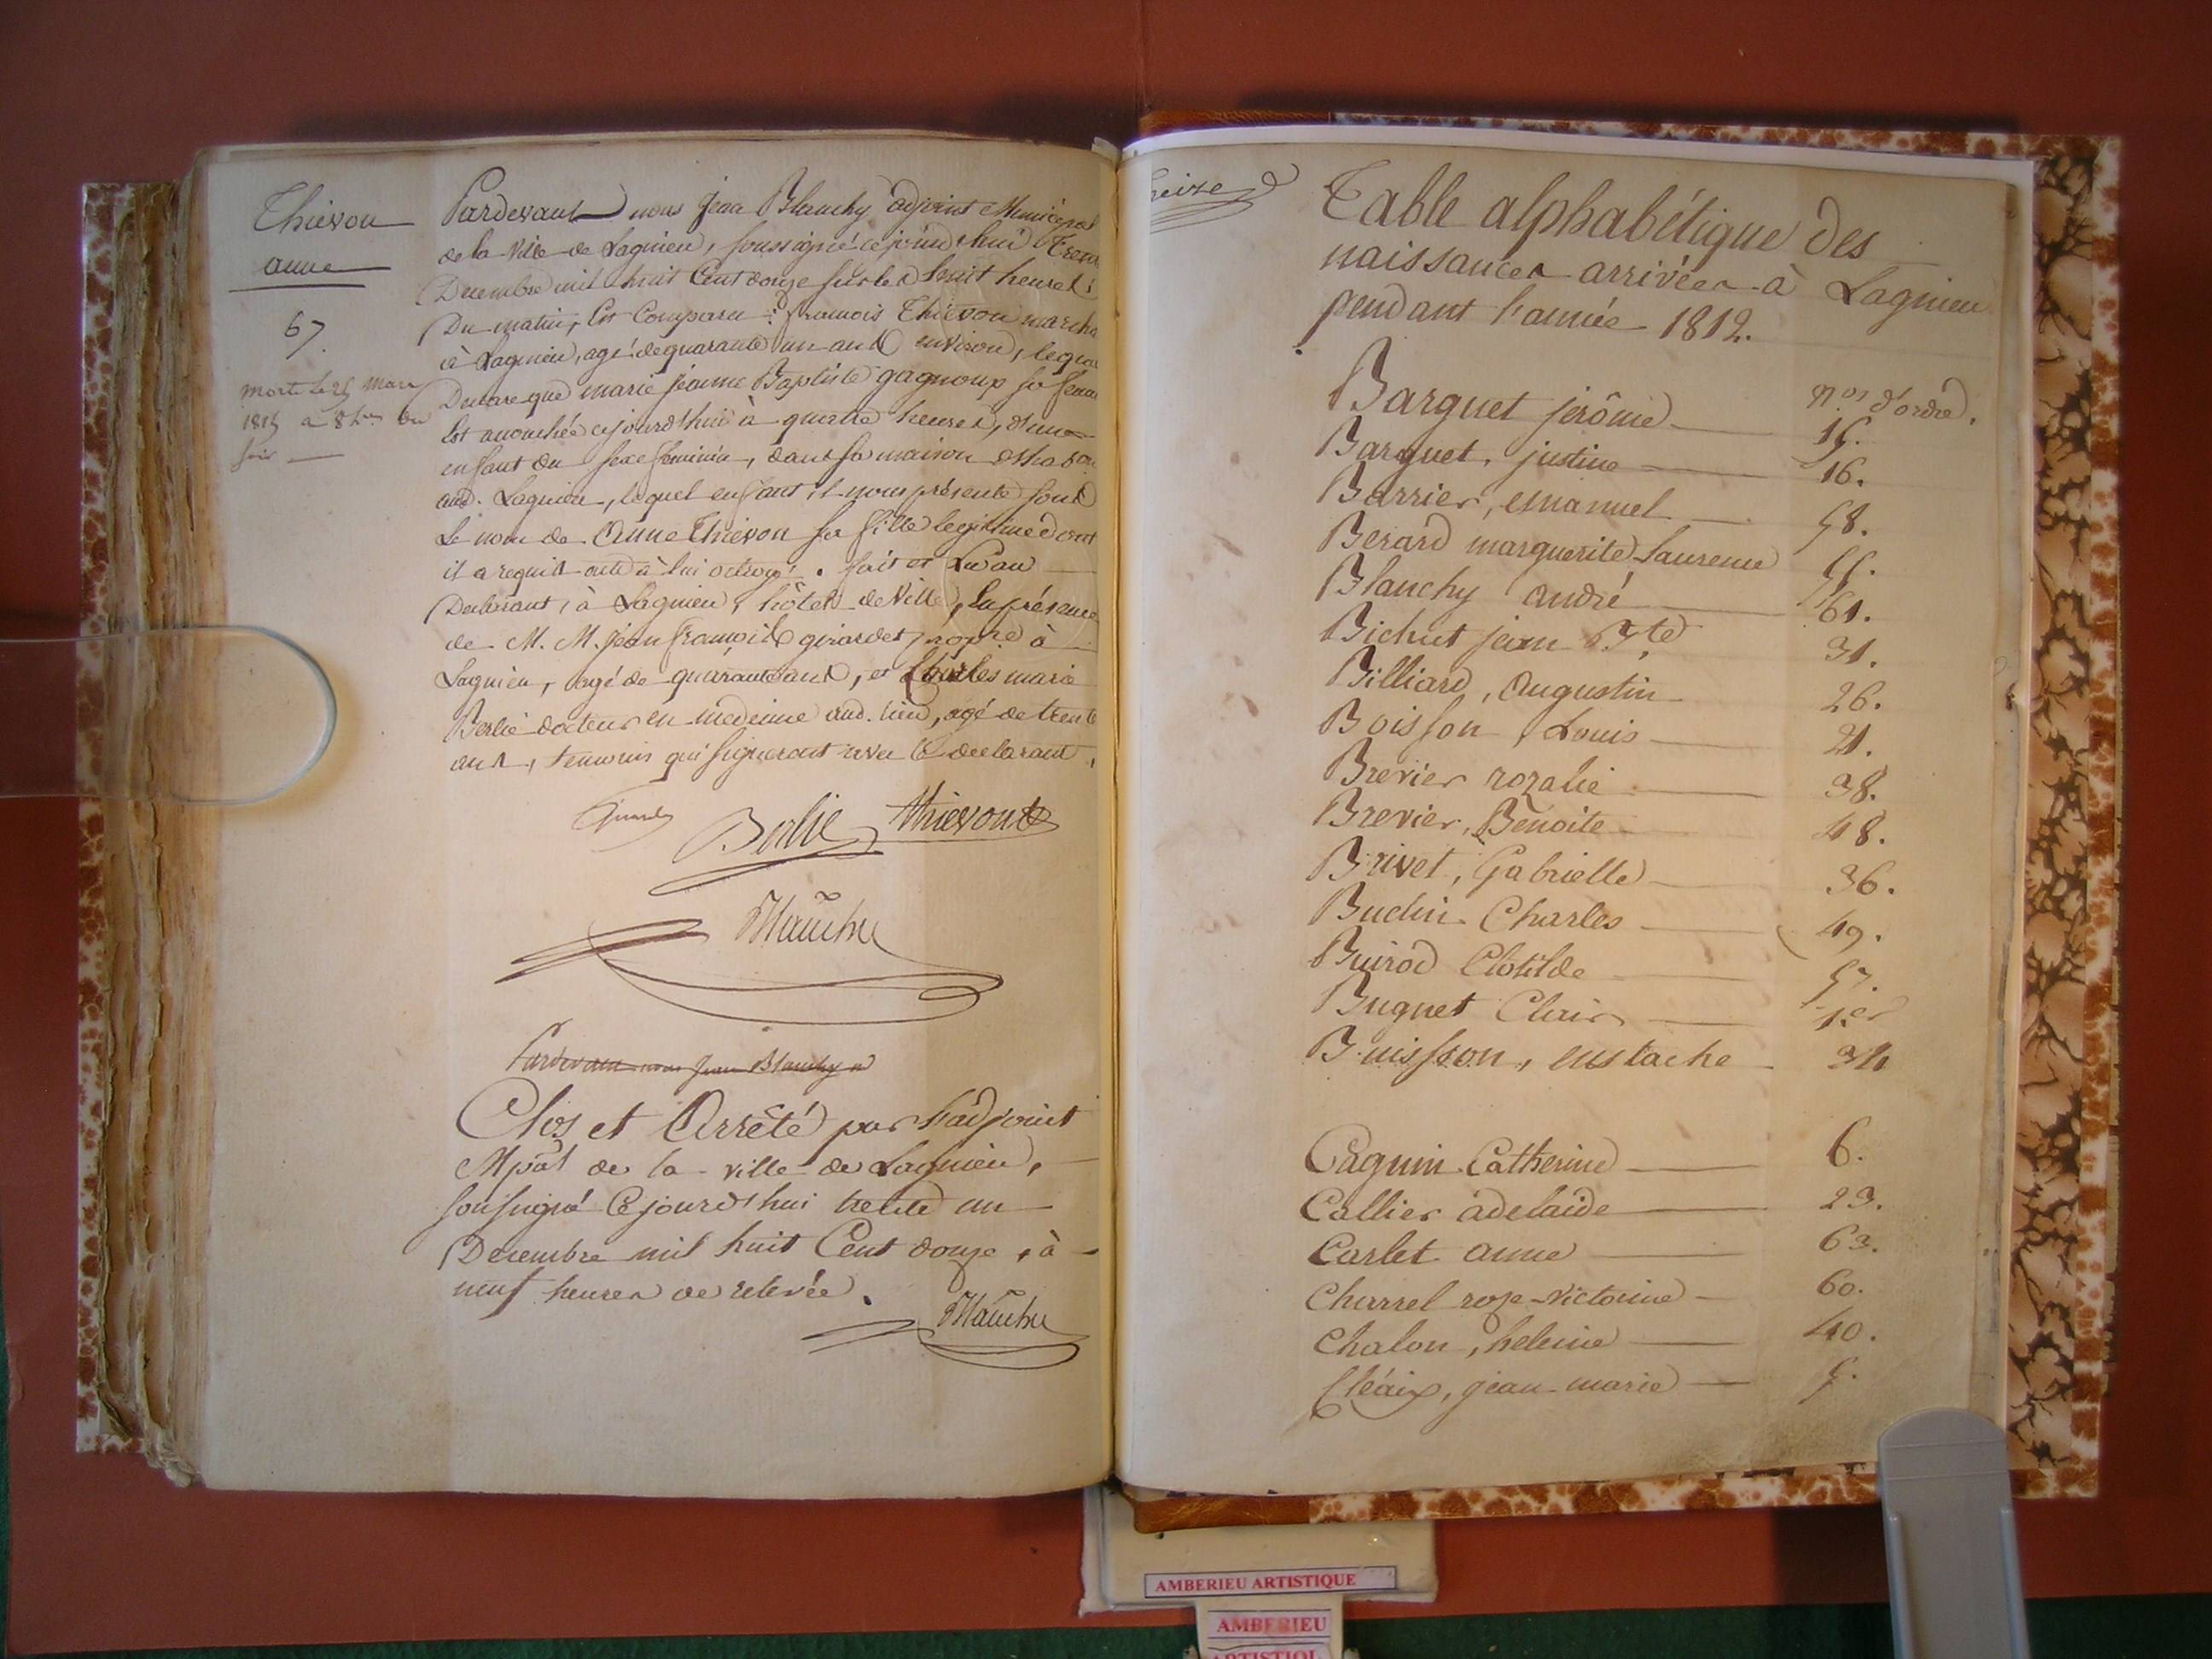 Thievon
anne
67.
morte le 25 Mars
1815 à 8 h.res du
soir
Pardevant nous Jean Blanchy adjoint Municipal
de la Ville de Lagnieu, soussigné cejourd'hui
Decembre mil huit Cent douze sur les huit heures
Du matin, Est Comparu : francois Thievon march
à Lagnieu, agé de quarante un ans environ, lequel
Declare que marie jeanne Baptiste gagnoup sa femme
Est accouchée cejourd'hui à quatre heures, d'une
enfant du sexe feminin, dans sa maison
aud. Lagnieu, lequel enfant il nous présente sous
Le nom de Anne Thievon sa fille legitime dont
il a requis acte à lui octroyé. fait et Lu au
Declarant, à Lagnieu, hôtel de Ville, En présence
de M. M. jean françois girardet propre à
Lagnieu, agé de quarante ans, et Charles marie
Berlie docteur en medecine aud. lieu, agé de trente
ans, temoins qui signeront avec le declarant,
Girardet
Berlie thievont
Blanchy
Pardevant nous Jean Blanchy a
Clos et Arrêté par l'adjoint
Mpal de la ville de Lagnieu,
soussigné Cejourd'hui trente un
Decembre mil huit Cent douze, à
neuf heures de relevée.
Blanchy
treize
Table alphabétique des
naissances arrivées à Lagnieu
pendant l'année 1812.
n.os d'ordre.
Barquet jerôme 15.
Barquet, justine 16.
Barrier, emanuel 58.
Berard marguerite Laurence 55.
Blanchy andré 61.
Bichut jean B.te 31.
Billiard, Augustin 26.
Boisson, Louis 21.
Brevier rozalie 38.
Brevier, Benoite 48.
Brivet, Gabrielle 36.
Buclin Charles 49.
Buirod Clotilde 57.
Buguet Clair 1.er
Buisson, eustache 34
Caguin Catherine 6.
Callier adelaïde 23.
Carlet anne 63.
Charrel roze-victorine 60.
Chalon, heleine 40.
Cléaix, jean-marie 5.
AMBERIEU ARTISTIQUE
AMBERIEU
ARTISTIQU